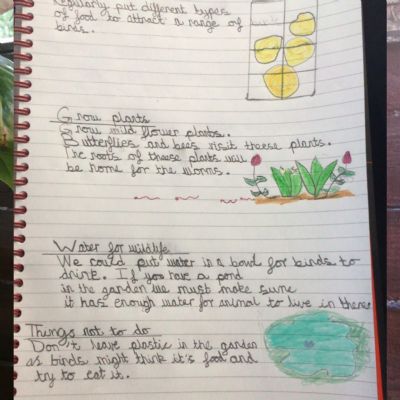 Regularly put different types
of food to attract a range of
birds.
Grow plants
Grow wild flower plants.
Butterflies and bees visit theese plants.
The roots of theese plats will
be home for the worms.
Water for wildlife
We could put water in a bowl for birds to
drink. If you have a pond
in the garden we must make sure
it has enough water for animal to live in there
Things not to do
Don't leave plastic in the garden
as birds might think it's food and
try to eat it.